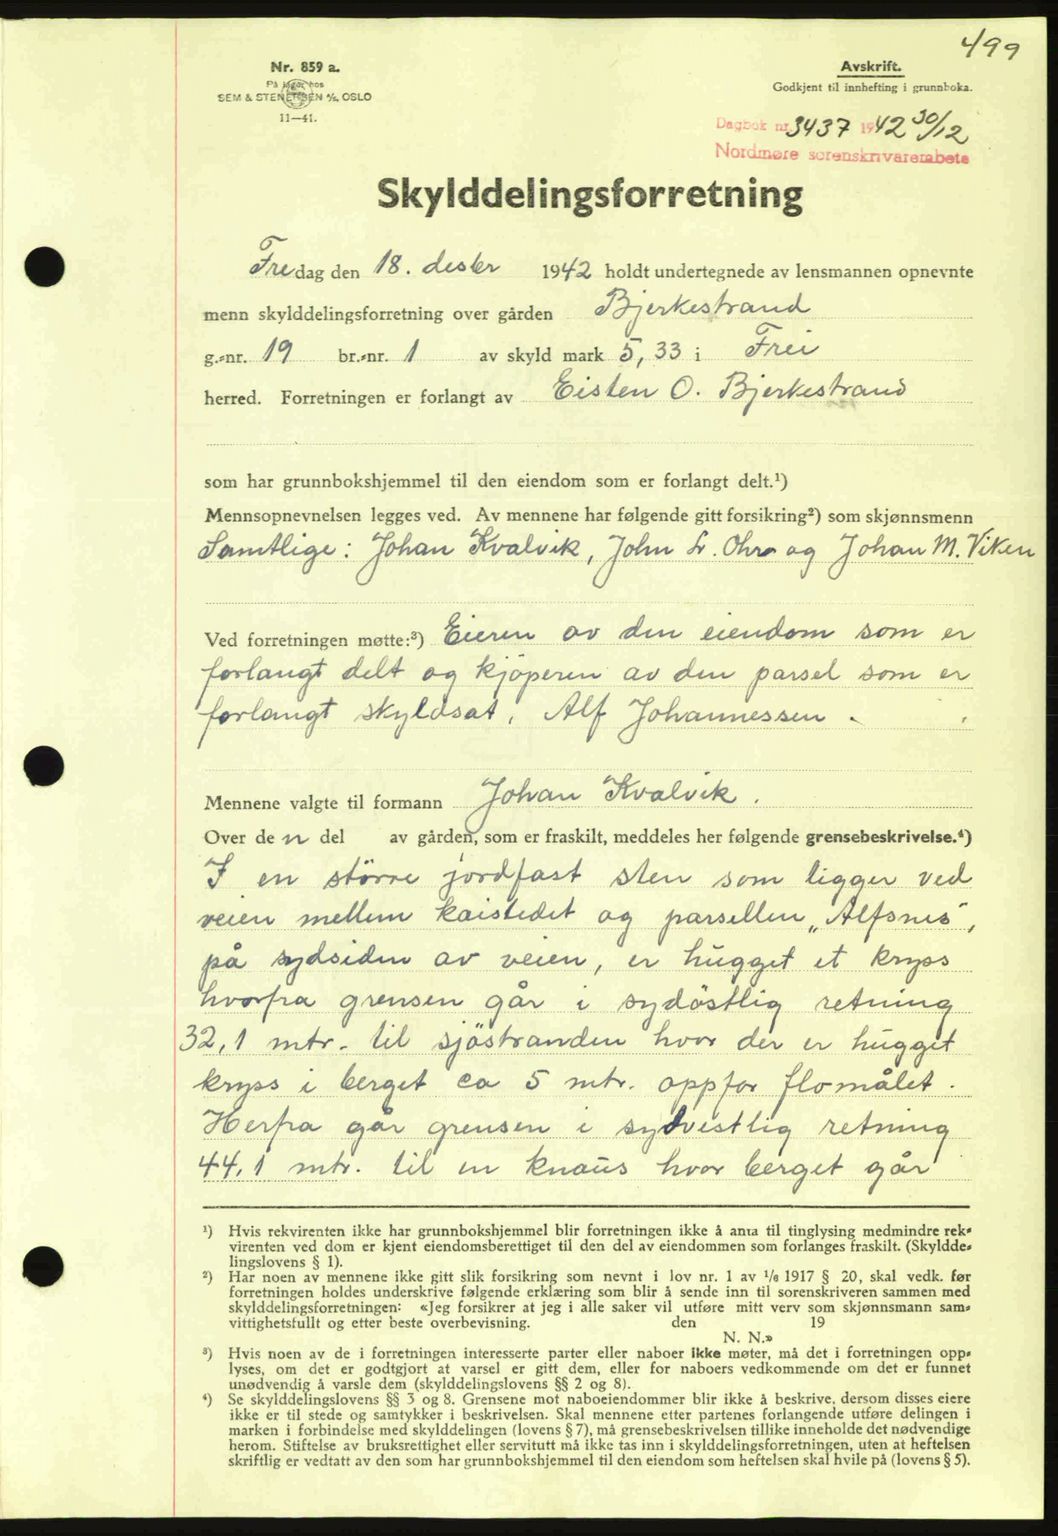 499
Nr. 859 a.
På lager hos
SEM & STENERSEN A/S, OSLO
11—41.
Avskrift.
Godkjent til innhefting i grunnboka.
Dagbok nr. 3437 1942 30/12
Nordmøre sorenskriverembete
Skylddelingsforretning
Fredag den 18. desbr 1942 holdt undertegnede av lensmannen opnevnte
menn skylddelingsforretning over gården Bjerkestrand
g.-nr. 19 br.-nr. 1 av skyld mark 5,33 i Frei
herred. Forretningen er forlangt av Eisten O. Bjerkestrand
som har grunnbokshjemmel til den eiendom som er forlangt delt.¹)
Mennsopnevnelsen legges ved. Av mennene har følgende gitt forsikring²) som skjønnsmenn
Samtlige: Johan Kvalvik, John Lr. Ohr og Johan M. Viken
Ved forretningen møtte:³) Eieren av den eiendom som er
forlangt delt og kjöperen av den parsel som er
forlangt skyldsat, Alf Johannessen.
Mennene valgte til formann Johan Kvalvik.
Over de n del av gården, som er fraskilt, meddeles her følgende grensebeskrivelse.⁴)
I en större jordfast sten som ligger ved
veien mellem kaistedet og parsellen „Alfsnes",
på sydsiden av veien, er hugget et kryss
hvorfra grensen går i sydöstlig retning
32,1 mtr. til sjöstranden hvor der er hugget
kryss i berget ca 5 mtr. oppfor flomålet.
Herfra går grensen i sydvestlig retning
44,1 mtr. til en knaus hvor berget går
¹) Hvis rekvirenten ikke har grunnbokshjemmel blir forretningen ikke å anta til tinglysing medmindre rek-
virenten ved dom er kjent eiendomsberettiget til den del av eiendommen som forlanges fraskilt. (Skyldde-
lingslovens § 1).
²) Har noen av mennene ikke gitt slik forsikring som nevnt i lov nr. 1 av 1/6 1917 § 20, skal vedk. før
forretningen holdes underskrive følgende erklæring som blir å sende inn til sorenskriveren sammen med
skylddelingsforretningen: «Jeg forsikrer at jeg i alle saker vil utføre mitt verv som skjønnsmann sam-
vittighetsfullt og etter beste overbevisning. den 19
N. N.»
³) Hvis noen av de i forretningen interesserte parter eller naboer ikke møter, må det i forretningen opp-
lyses, om det er godtgjort at varsel er gitt dem, eller for naboers vedkommende om det er funnet
unødvendig å varsle dem (skylddelingslovens §§ 2 og 8).
⁴) Se skylddelingslovens §§ 3 og 8. Grensene mot naboeiendommer blir ikke å beskrive, dersom disses eiere
ikke er til stede og samtykker i beskrivelsen. Skal mennene etter partenes forlangende utføre delingen i
marken i forbindelse med skylddelingen (lovens § 7), må grensebeskrivelsen tillike inneholde det nødvendige
herom. Stiftelse av bruksrettighet eller servitutt må ikke tas inn i skylddelingsforretningen, uten at heftelsen
skriftlig er vedtatt av den som har grunnbokshjemmel til den eiendom som heftelsen skal hvile på (lovens § 5).